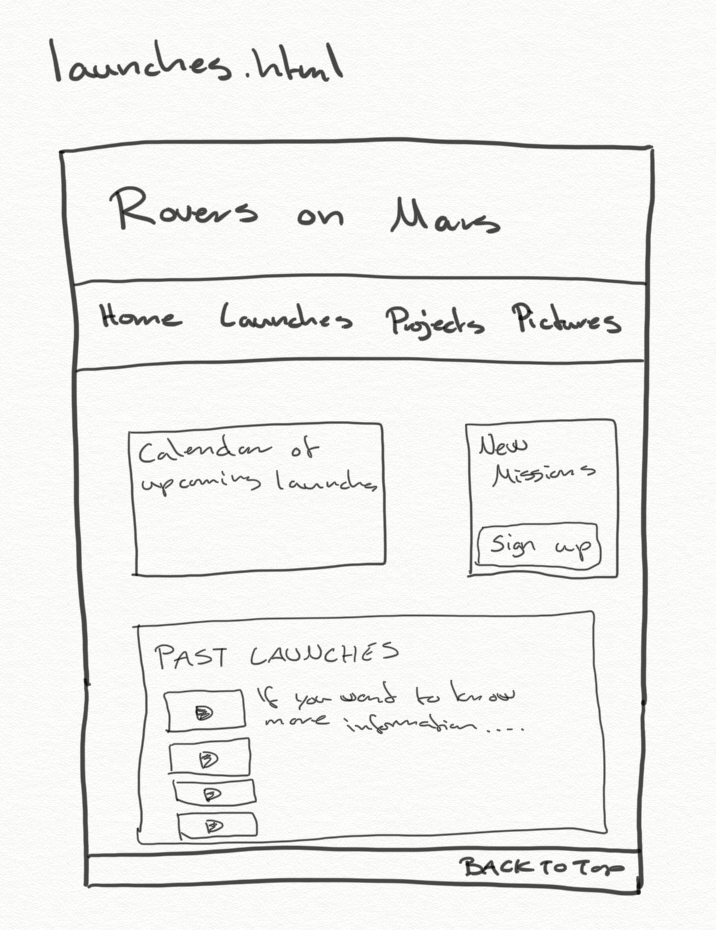 launches.html
Rovers on Mars
Home Launches Projects Pictures
Calendar of
upcoming launches
New
Missions
Sign up
PAST LAUNCHES
If you want to know
more information....
BACK TO TOP